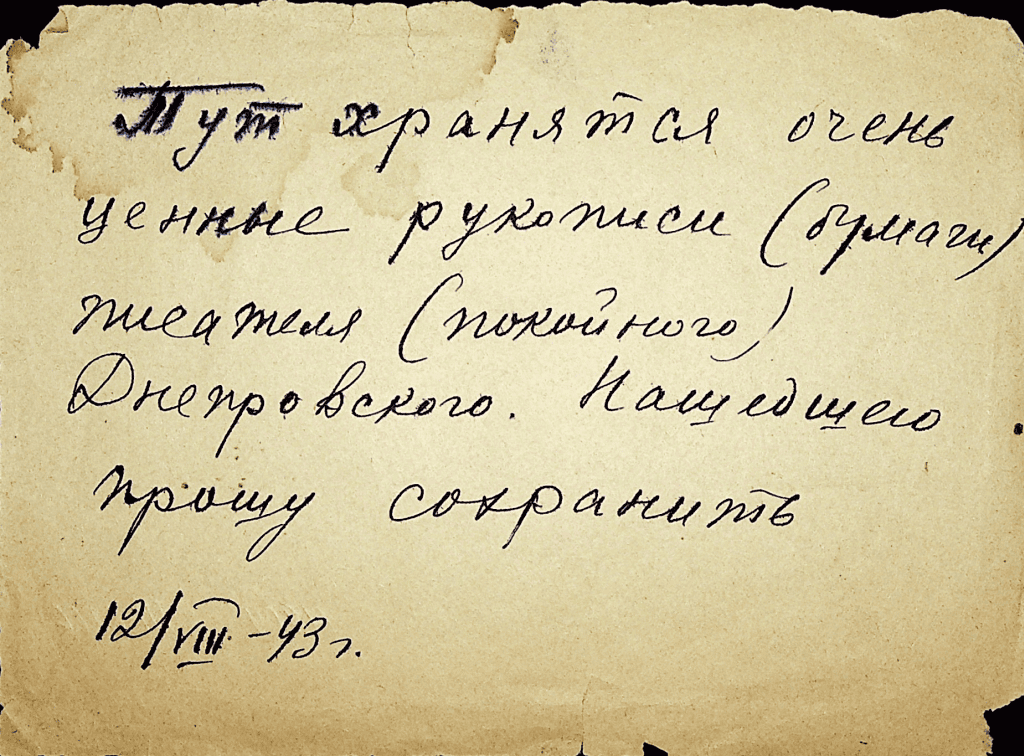 Тут хранятся очень
ценные рукописи (бумаги)
писателя (покойного)
Днепровского. Нашедшего
прошу сохранить
12/VIII-43 г.